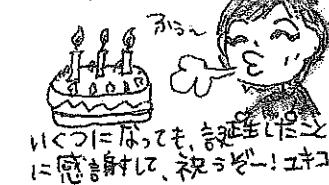 ふぅ〜
いくつになっても、誕生したこと
に感謝して、祝うぞー!ユキコ